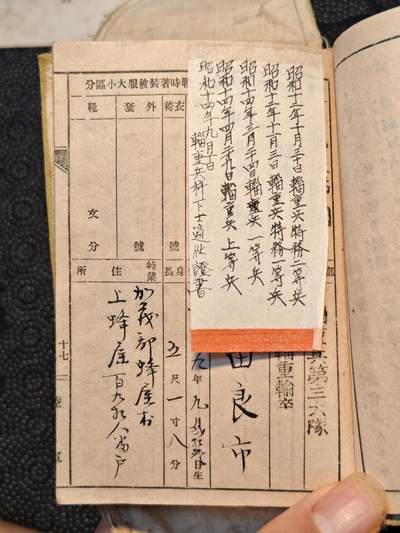 昭和十二年十月三十日輜重兵特務二等兵
昭和十三年十一月三日輜重兵特務一等兵
昭和十四年三月二十四日輜重兵一等兵
昭和十四年四月二十九日輜重兵上等兵
昭和十四年九月一日
輜重兵科下士適任證書
兵第三六隊
輜重輸卒
田良市
年九月
日生
戰時著裝被服大小區分
衣袴
外套
靴
號
號
文
分
身長
五尺一寸八分
特業
住所
加茂郡蜂屋村
上蜂屋百九
戶
十七